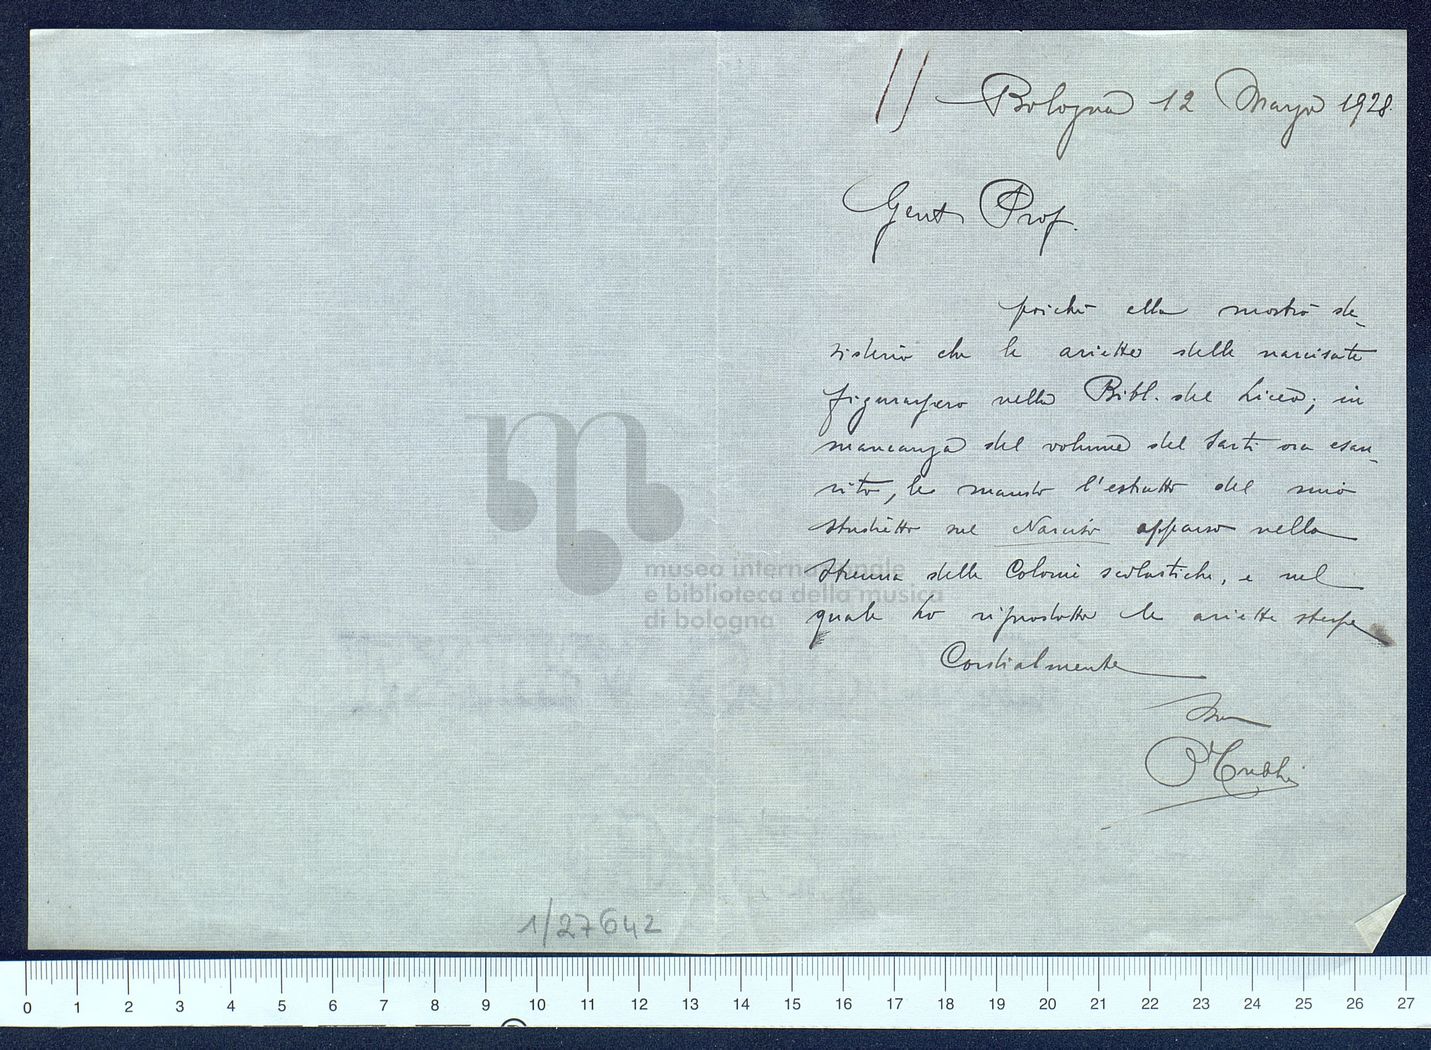 Bologna 12 Marzo 1928.
Gent. Prof.
poichè ella mostrò de-
siderio che le ariette delle narcisate
figurassero nella Bibl. del Liceo; in
mancanza del volume del Sarti ora esau-
rito, le mando l'estratto del mio
studietto sul Narciso apparso nella
Strenna delle Colonie scolastiche, e nel
quale ho riprodotto le ariette stesse
Cordialmente
Suo
museo internazionale
e biblioteca della musica
di bologna
1/27642
0 1 2 3 4 5 6 7 8 9 10 11 12 13 14 15 16 17 18 19 20 21 22 23 24 25 26 27